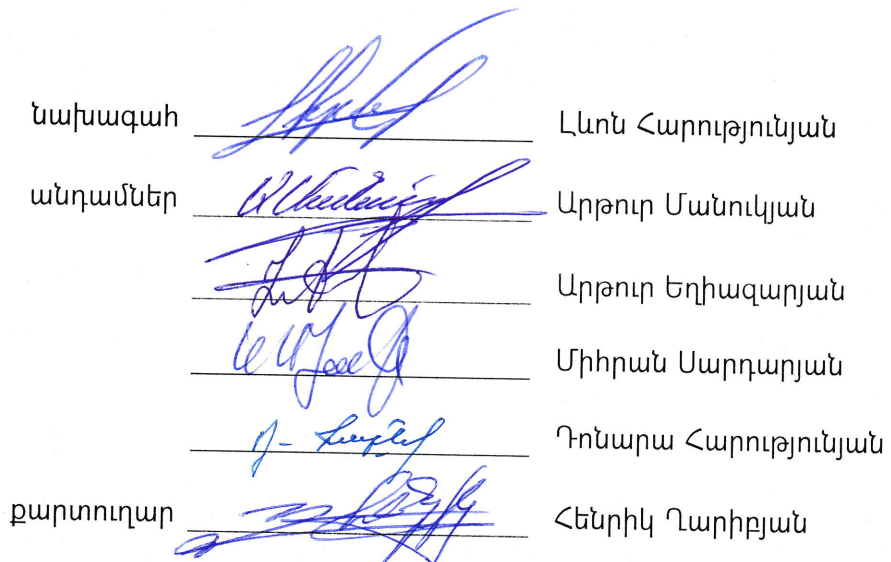 նախագահ Լևոն Հարությունյան
անդամներ Արթուր Մանուկյան
Արթուր Եղիազարյան
Միհրան Սարդարյան
Դոնարա Հարությունյան
քարտուղար Հենրիկ Ղարիբյան